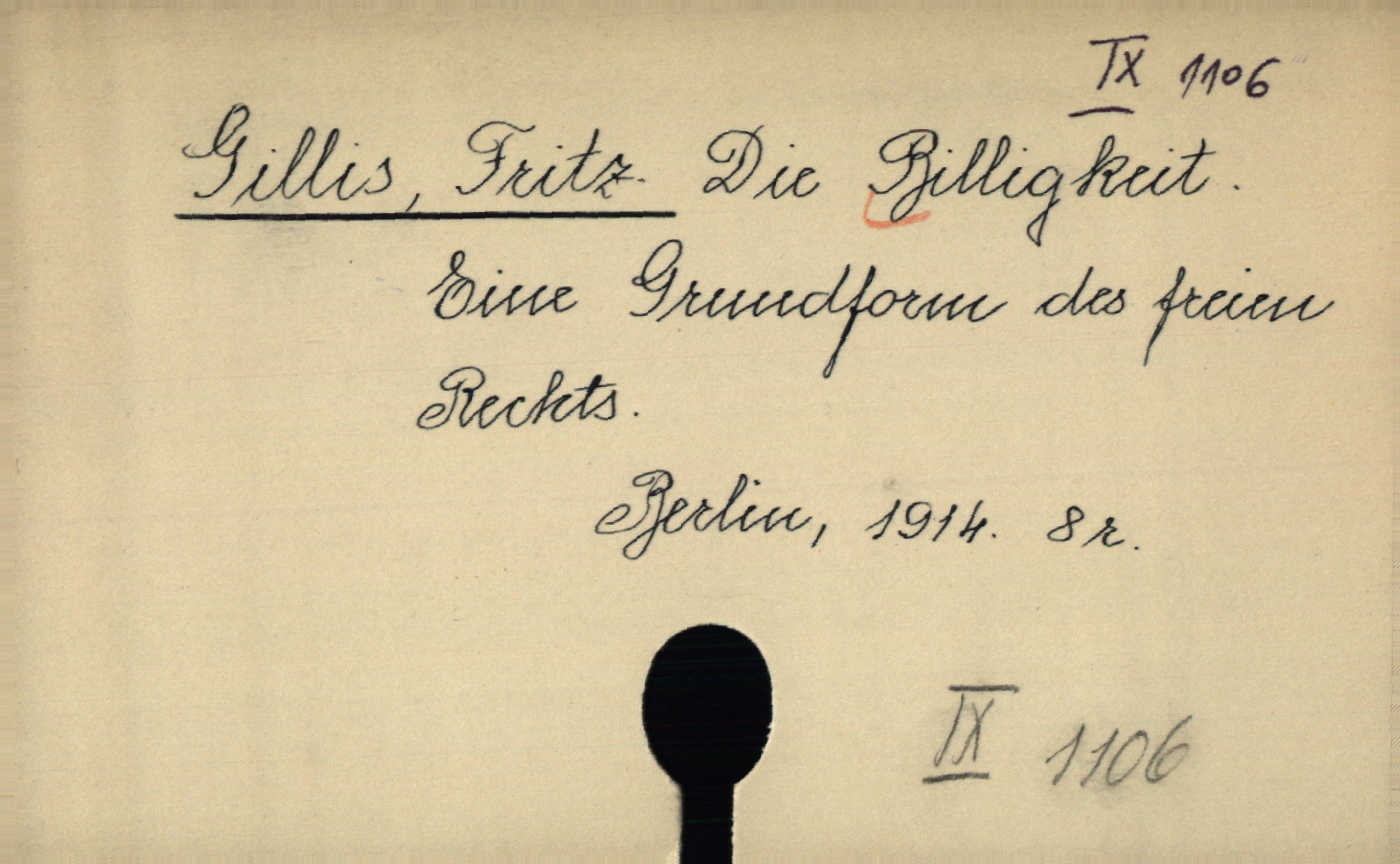 IX 1106
Gillis, Fritz. Die Billigkeit.
Eine Grundform des freien
Rechts.
Berlin, 1914. 8 r.
IX 1106